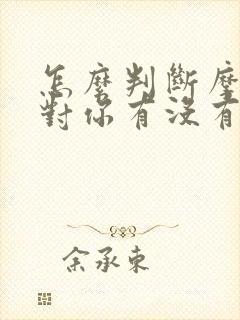 怎麼判斷
對你有沒有
余承東